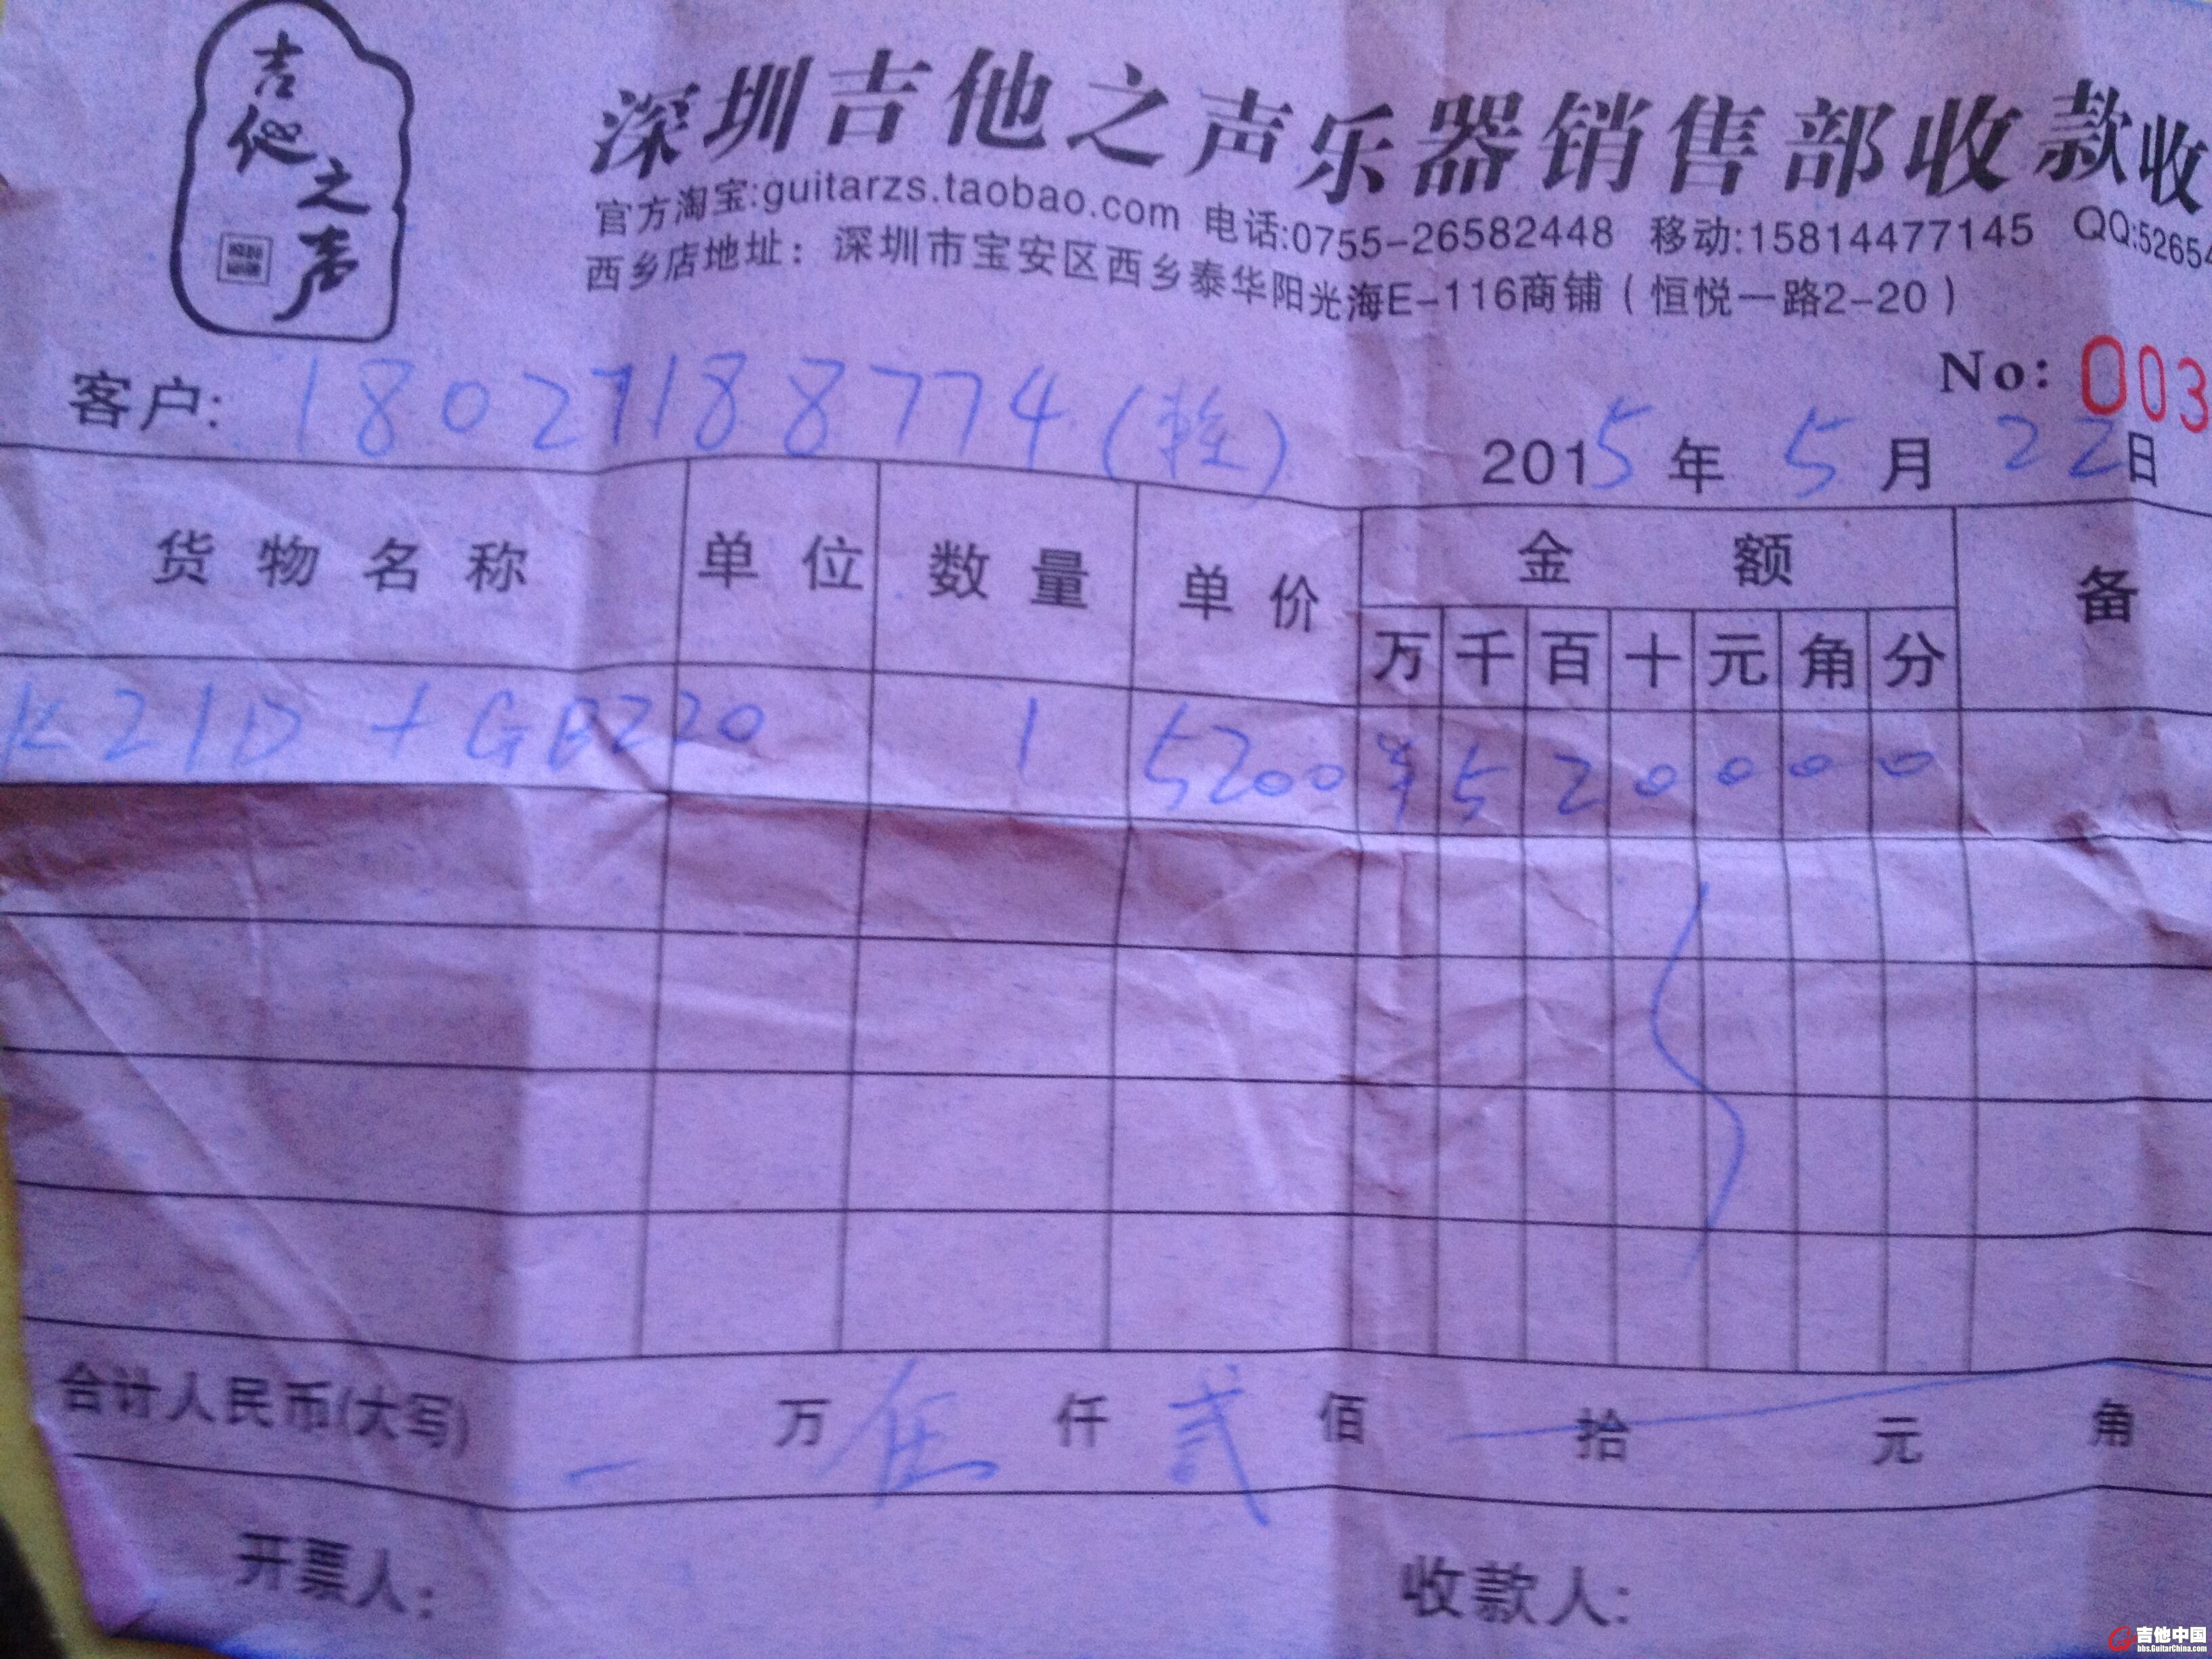 吉他之声
深圳吉他之声乐器销售部收款收
官方淘宝:guitarzs.taobao.com 电话:0755-26582448 移动:15814477145 QQ:52654
西乡店地址：深圳市宝安区西乡泰华阳光海E-116商铺（恒悦一路2-20）
No: 003
客户: 18027188774
2015年 5月 22日
货物名称 单位 数量 单价 金额 备
万 千 百 十 元 角 分
K21D + GB220 1 5200 ¥ 5 2 0 0 0 0
合计人民币(大写) 万 伍 仟 贰 佰 拾 元 角
开票人: 收款人:
吉他中国
bbs.GuitarChina.com